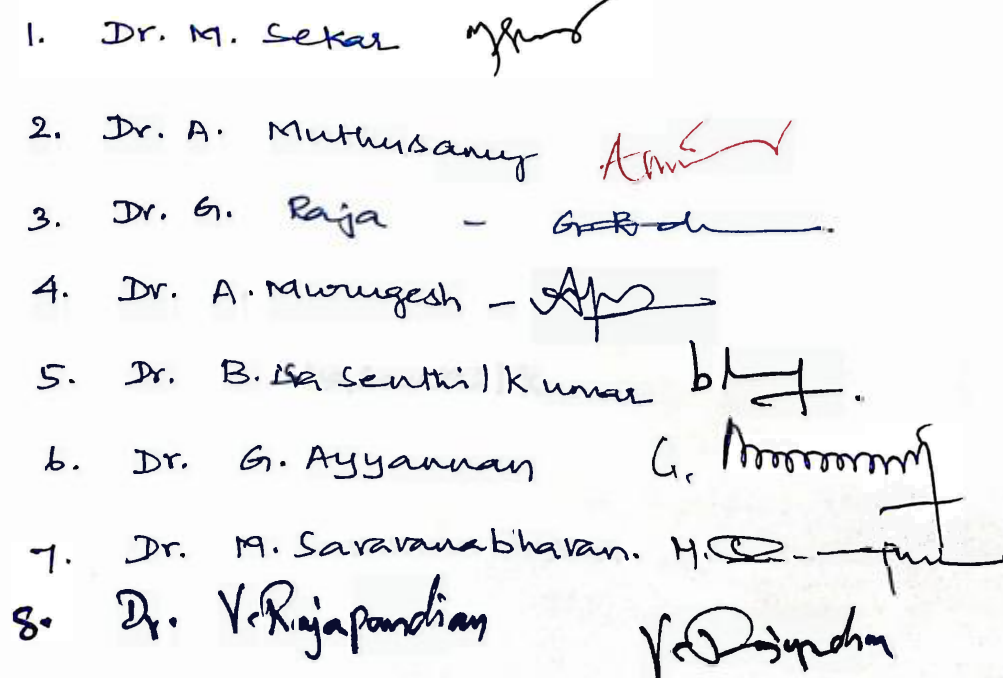 1. Dr. M. Sekar
2. Dr. A. Muthusamy
3. Dr. G. Raja -
4. Dr. A. Murugesh -
5. Dr. B. Senthilkumar
6. Dr. G. Ayyannan G.
7. Dr. M. Saravanabhavan. M.
8. Dr. V. Rajapandian V.